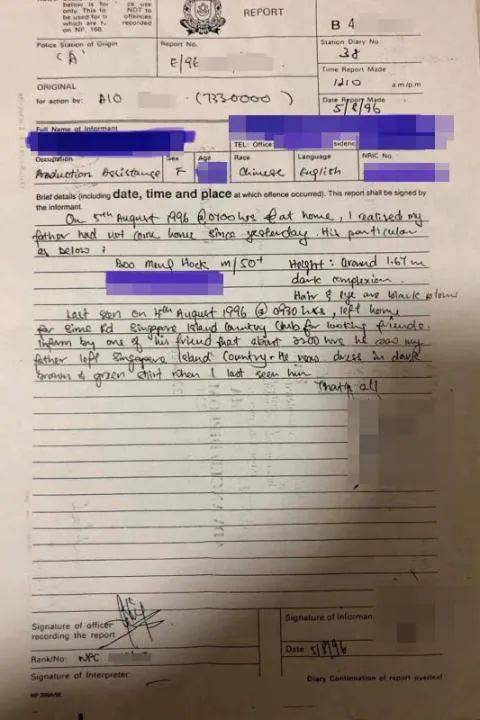 below is for ce use
only. This fo NOT to
be used for ti offences
which are re recorded
on NP. 168.
REPORT
B 4
Police Station of Origin
'A'
Report No.
E/96
Station Diary No.
38
Time Report Made
1210 a.m/p.m.
ORIGINAL
for action by: AIO (7330000)
Date Report Made
5/8/96
Full Name of Informant
TEL: Office: sidenc
Occupation Sex Age Race Language NRIC No.
Production Assistance F Chinese English
Brief details (including date, time and place at which offence occurred). This report shall be signed by
the informant.
On 5th August 1996 @ 0700 hrs @ at home, I realised my
father had not come home since yesterday. His particular
as below :
Boo Meng Hock m/50+ Height : Around 1.67 m
dark complexion
Hair & eye are black colour
Last seen on 4th August 1996 @ 0930 hrs, left home
for Sime Rd Singapore Island Country Club for looking friends.
Inform by one of his friend that about 2200 hrs he saw my
father left Singapore Island Country. He was dress in dark
brown & green shirt when I last seen him.
That's all
Signature of officer
recording the report
Signature of Informan
Rank/No: NPC
Date: 5/8/96
Signature of Interpreter:
Diary Continuation of report overleaf